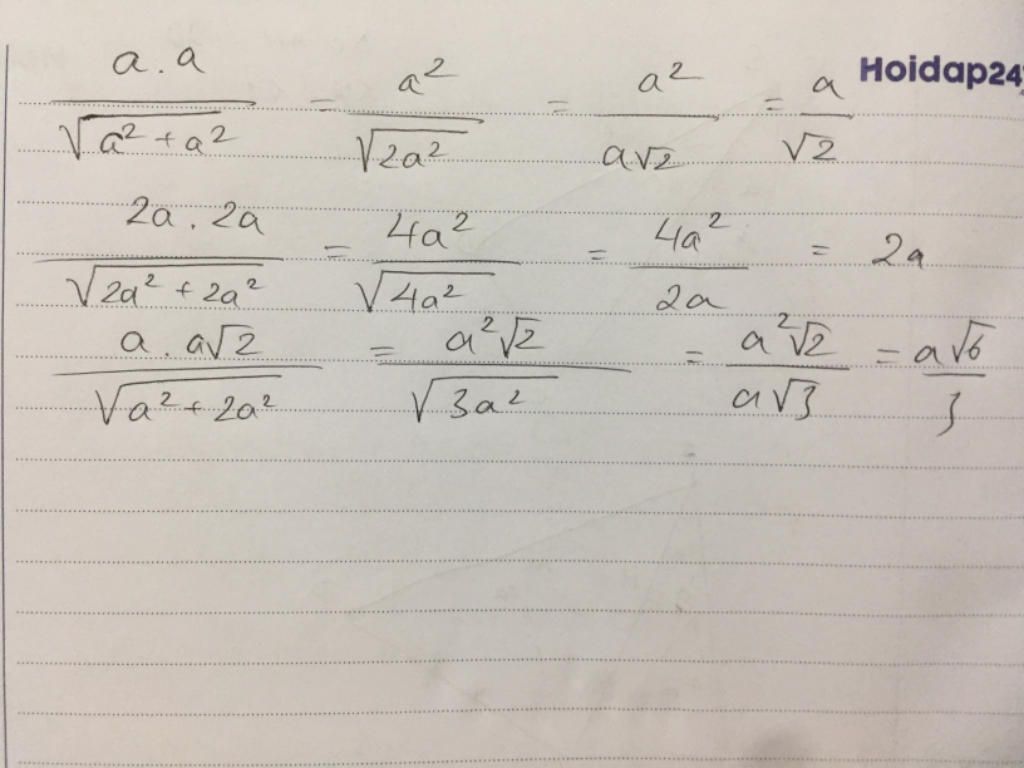 Hoidap247
\frac{a . a}{\sqrt{a^2 + a^2}} = \frac{a^2}{\sqrt{2a^2}} = \frac{a^2}{a\sqrt{2}} = \frac{a}{\sqrt{2}}
\frac{2a . 2a}{\sqrt{2a^2 + 2a^2}} = \frac{4a^2}{\sqrt{4a^2}} = \frac{4a^2}{2a} = 2a
\frac{a . a\sqrt{2}}{\sqrt{a^2 + 2a^2}} = \frac{a^2\sqrt{2}}{\sqrt{3a^2}} = \frac{a^2\sqrt{2}}{a\sqrt{3}} = \frac{a\sqrt{6}}{3}